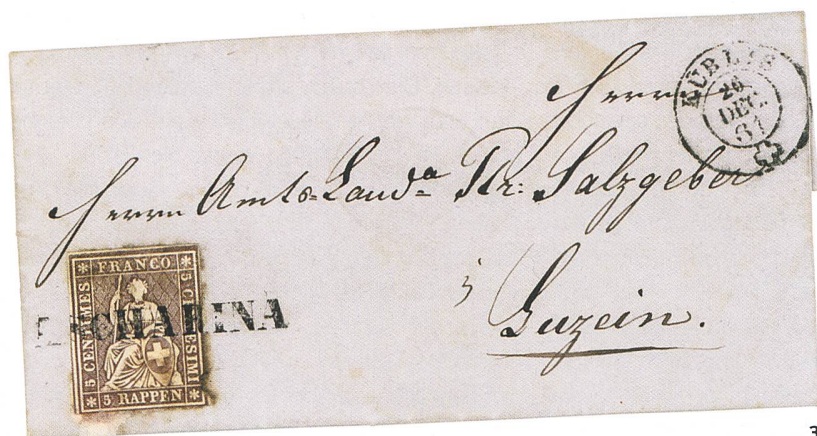 KÜBLIS
26
DEC
61
Herrn
Herrn Amts=Landa Ptr: Salzgeber
Luzein.
* FRANCO *
5 CENTIMES
5 CENTESIMI
* 5 RAPPEN *
CHARINA
3